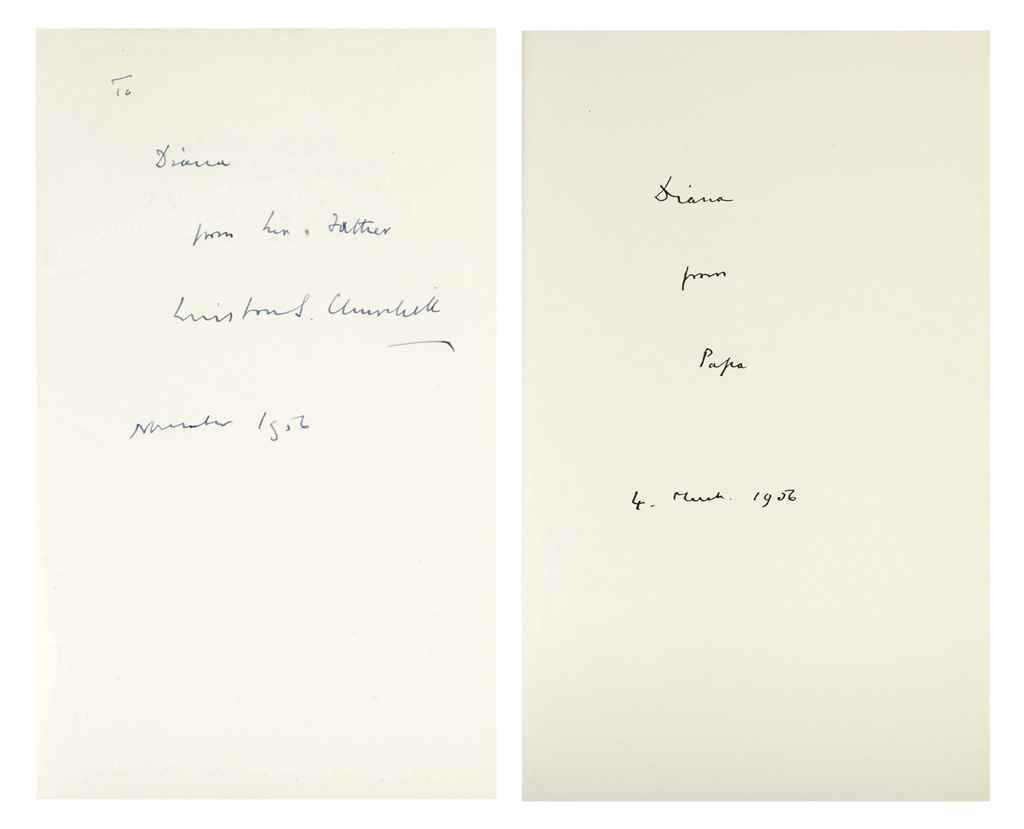 To
Diana
from her Father
Winston S. Churchill
November 1956
Diana
from
Papa
4. March. 1956